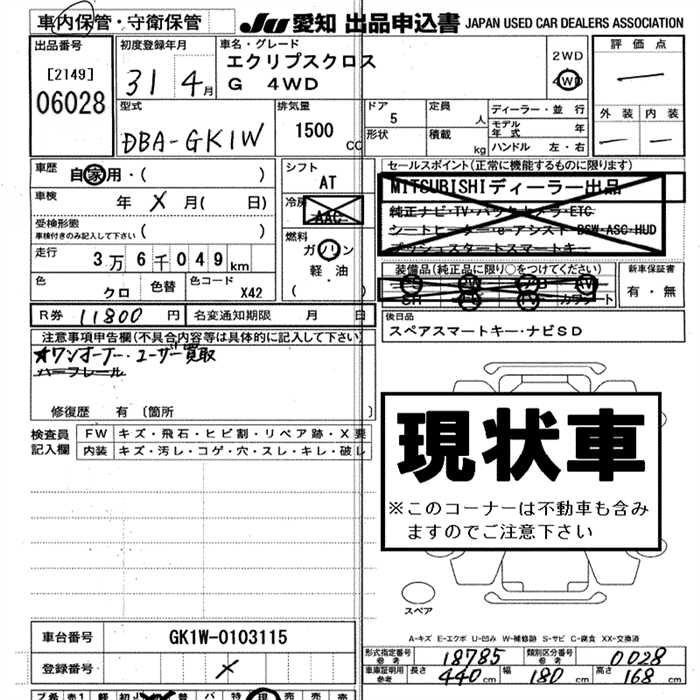 車内保管・守衛保管 JU 愛知 出品申込書 JAPAN USED CAR DEALERS ASSOCIATION
出品番号
[2149]
06028
初度登録年月
31 4月
車名・グレード
エクリプスクロス
G 4WD
2WD
4WD
評価点
外装 内装
型式
DBA-GK1W
排気量
1500 CC
ドア
5
形状
定員 人
積載 kg
ディーラー・並行
モデル年式 年
ハンドル 左・右
車歴
自家用・( )
車検 年 X 月( 日)
受検形態
車検付きのみ記入して下さい ( )
走行
3万6千049km
色
クロ
色替
色コード
X42
シフト
AT
冷房
AAC
燃料
ガソリン
軽油
( )
セールスポイント(正常に機能するものに限ります)
MITSUBISHIディーラー出品
純正ナビ・TV・バックカメラ・ETC
シートヒーター・e-アシスト・BSW・ASC・HUD
プッシュスタートスマートキー
装備品(純正品に限り○をつけてください)
SR TV カワシート
新車保証書
有・無
R券 11800 円
名変通知期限 月 日
後日品
スペアスマートキー・ナビSD
注意事項申告欄(不具合内容等は具体的に記入して下さい)
★ワンオーナー・ユーザー買取
ハーフレール
修復歴 有 〔箇所 〕
検査員記入欄
FW キズ・飛石・ヒビ割・リペア跡・X要
内装 キズ・汚レ・コゲ・穴・スレ・キレ・破レ
現状車
※このコーナーは不動車も含み
ますのでご注意下さい
スペア
A-キズ E-エクボ U-凹み W-補修跡 S-サビ C-腐食 XX-交換済
車台番号
GK1W-0103115
登録番号
X
形式指定番号
参考
18785
類別区分番号
参考
0028
車庫証明用
参考
長さ 440cm
幅 180cm
高さ 168cm